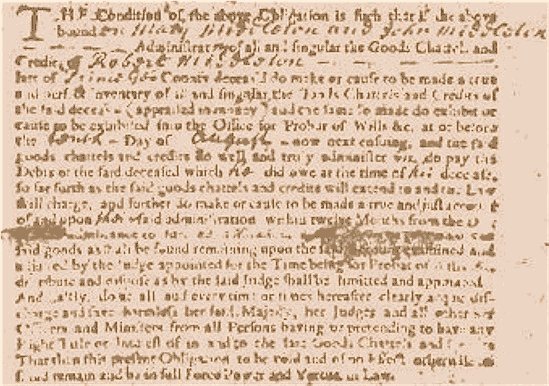 THE Condition of the above Obligation is such that if the above
bounden Mary Middleton and John Middleton
Administrators of all and singular the Goods Chattels and
Credits of Robert Middleton
late of Prince Geo County deceased do make or cause to be made a true
and perfect Inventory of all and singular the Goods Chattels and Credits of
the said deceased (appraised in money) and the same so made do exhibit or
cause to be exhibited into the Office for Probat of Wills &c. at or before
the tenth Day of August now next ensuing, and the said
goods chattels and credits do well and truly administer viz. do pay the
Debts of the said deceased which he did owe at the time of his decease,
so far forth as the said goods chattels and credits will extend to and the Law
shall charge, and further do make or cause to be made a true and just account
of and upon the said administration within twelve Months from the
said goods as shall be found remaining upon the said examined and
by the Judge appointed for the Time being for Probat of
distribute and dispose as by the said Judge shall be limitted and appointed
And lastly, do at all and every time or times hereafter clearly acquit dis-
charge and save harmless her said Majesty, her Judges and all other
Officers and Ministers from all Persons having or pretending to have any
Right Title or Interest of in and to the said Goods Chattels and
That then this present Obligation to be void and of no Effect otherwise
stand remain and be in full Force Power and Vertue in Law.